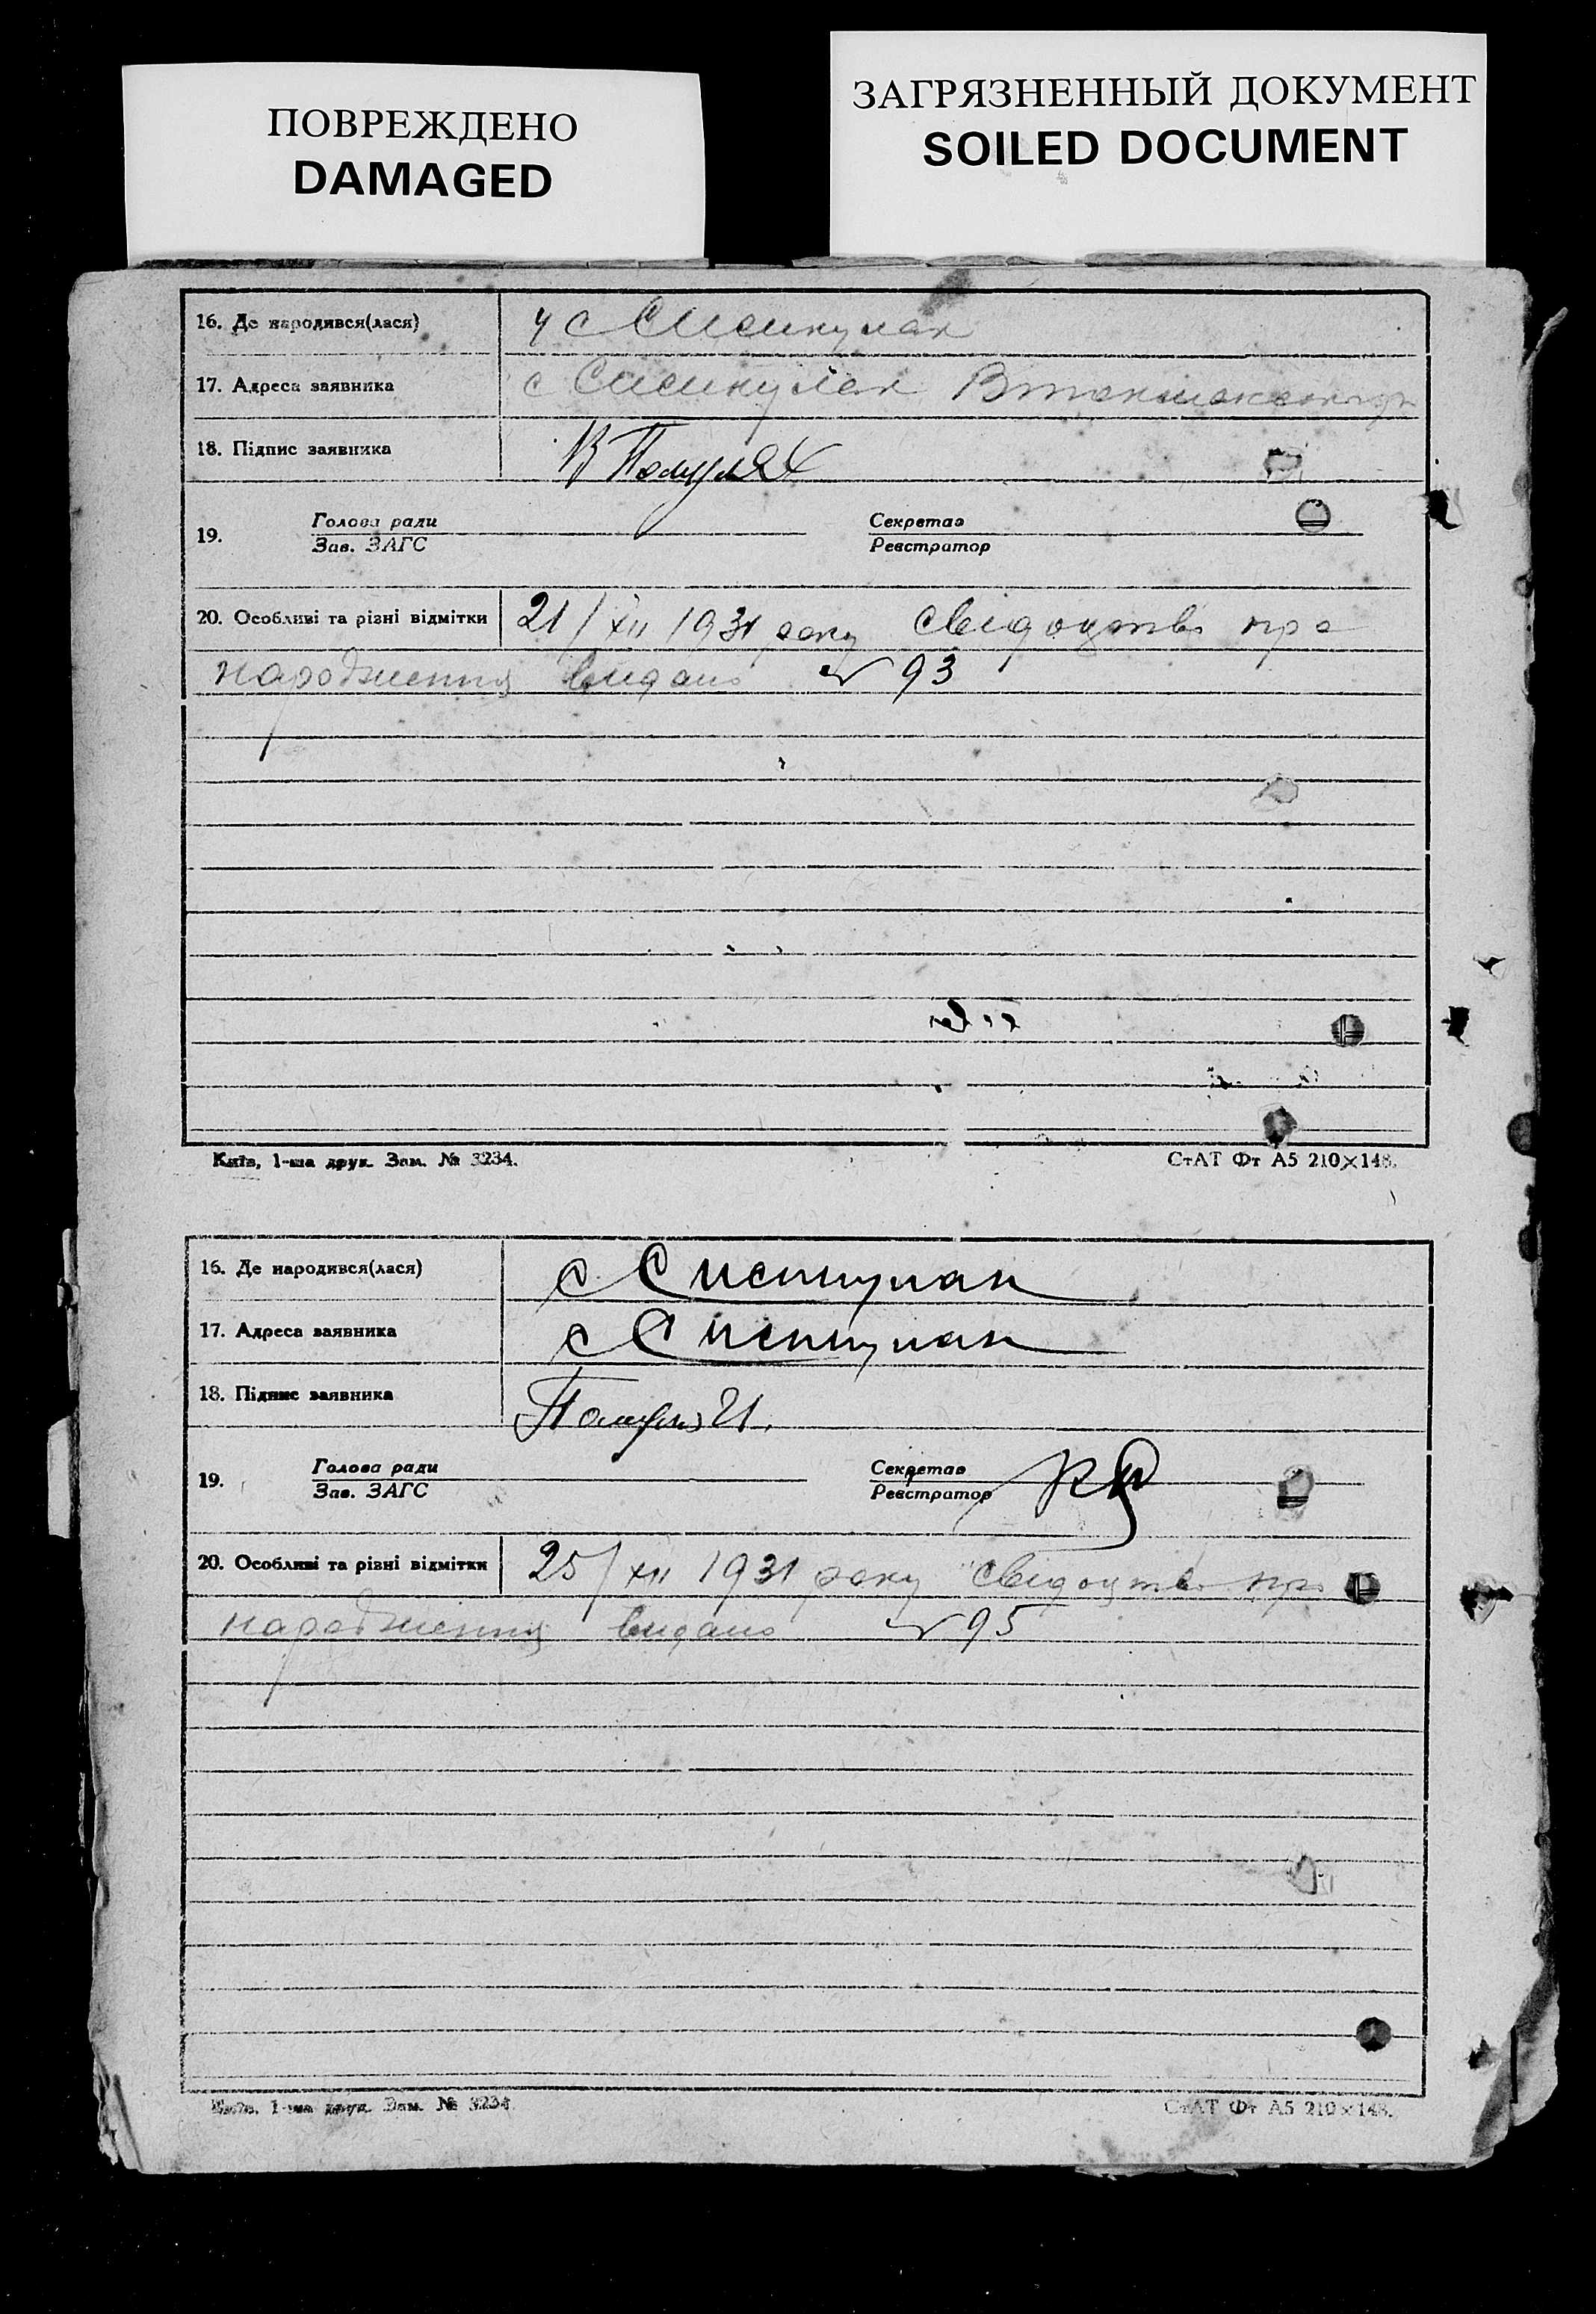 ПОВРЕЖДЕНО
DAMAGED
ЗАГРЯЗНЕННЫЙ ДОКУМЕНТ
SOILED DOCUMENT
16. Де народився(лася) у с
17. Адреса заявника с
18. Підпис заявника В
19. Голова ради Секретар
Зав. ЗАГС Реєстратор
20. Особливі та різні відмітки 21/XII 1931 року свідоцтво про
народження видано № 93
Київ, 1-ша друк. Зам. № 3234. СтАТ Фт А5 210×148.
16. Де народився(лася) с
17. Адреса заявника с
18. Підпис заявника
19. Голова ради Секретар
Зав. ЗАГС Реєстратор
20. Особливі та різні відмітки 25/XII 1931 року свідоцтво про
народження видано № 95
Київ, 1-ша друк. Зам. № 3234 СтАТ Фт А5 210×148.